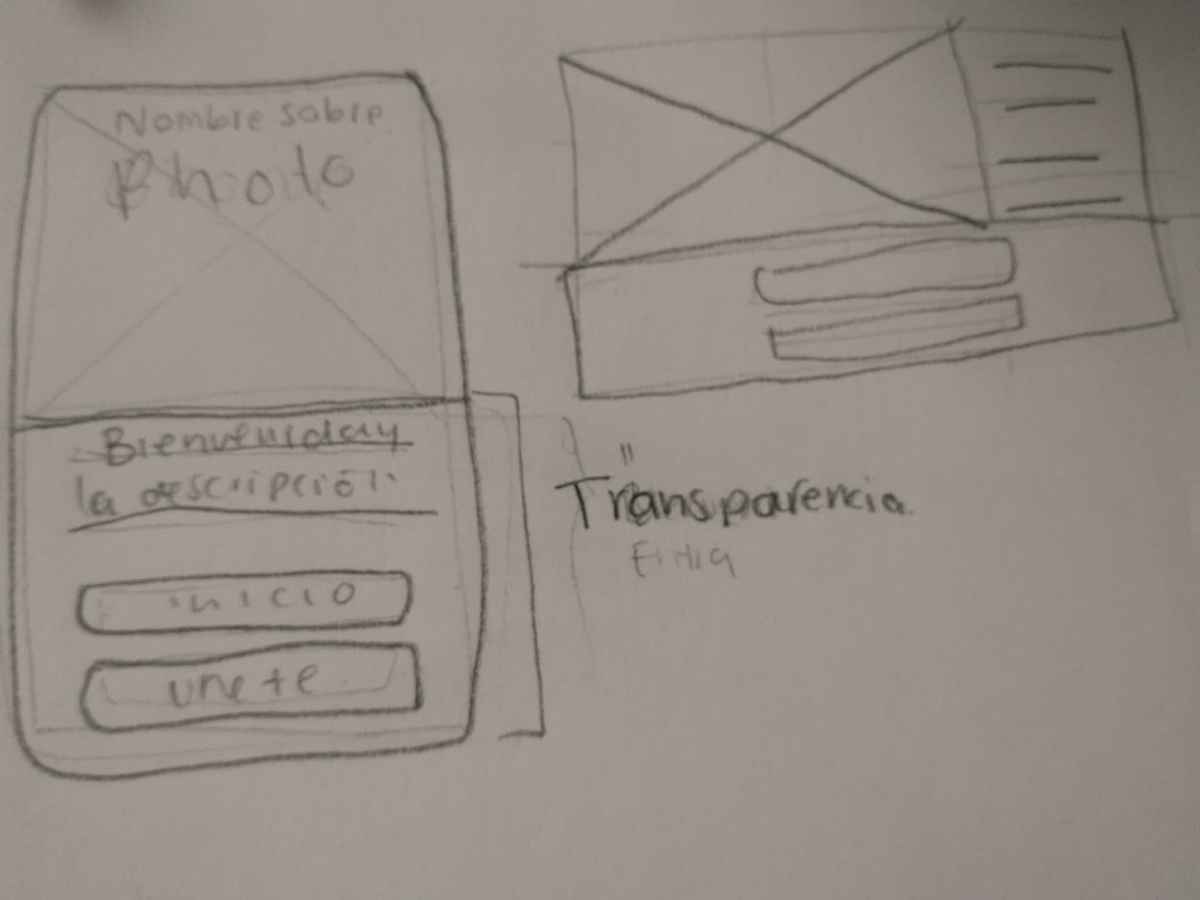 Nombre sobre
Photo
Bienvenida y
la descripción
inicio
unete
"
Transparencia